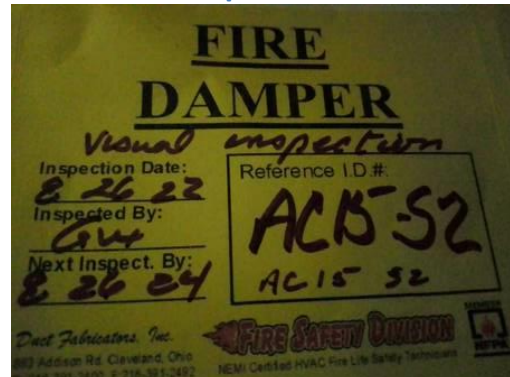 FIRE
DAMPER
Visual inspection
Inspection Date:
8 26 22
Inspected By:
Next Inspect. By:
8 26 24
Reference I.D.#:
AC15-S2
AC15 S2
Duct Fabricators, Inc.
Addison Rd. Cleveland, Ohio
FIRE SAFETY DIVISION
NEMI Certified HVAC Fire Life Safety Technicians
MEMBER
NFPA